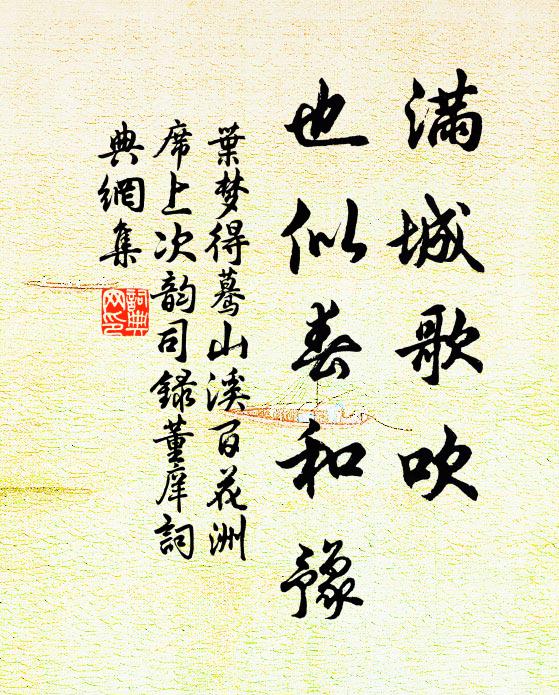 滿城歌吹
也似春和豫
葉梦得驀山溪百花洲
席上次韵司録董庠詞
典網集
詞典网印